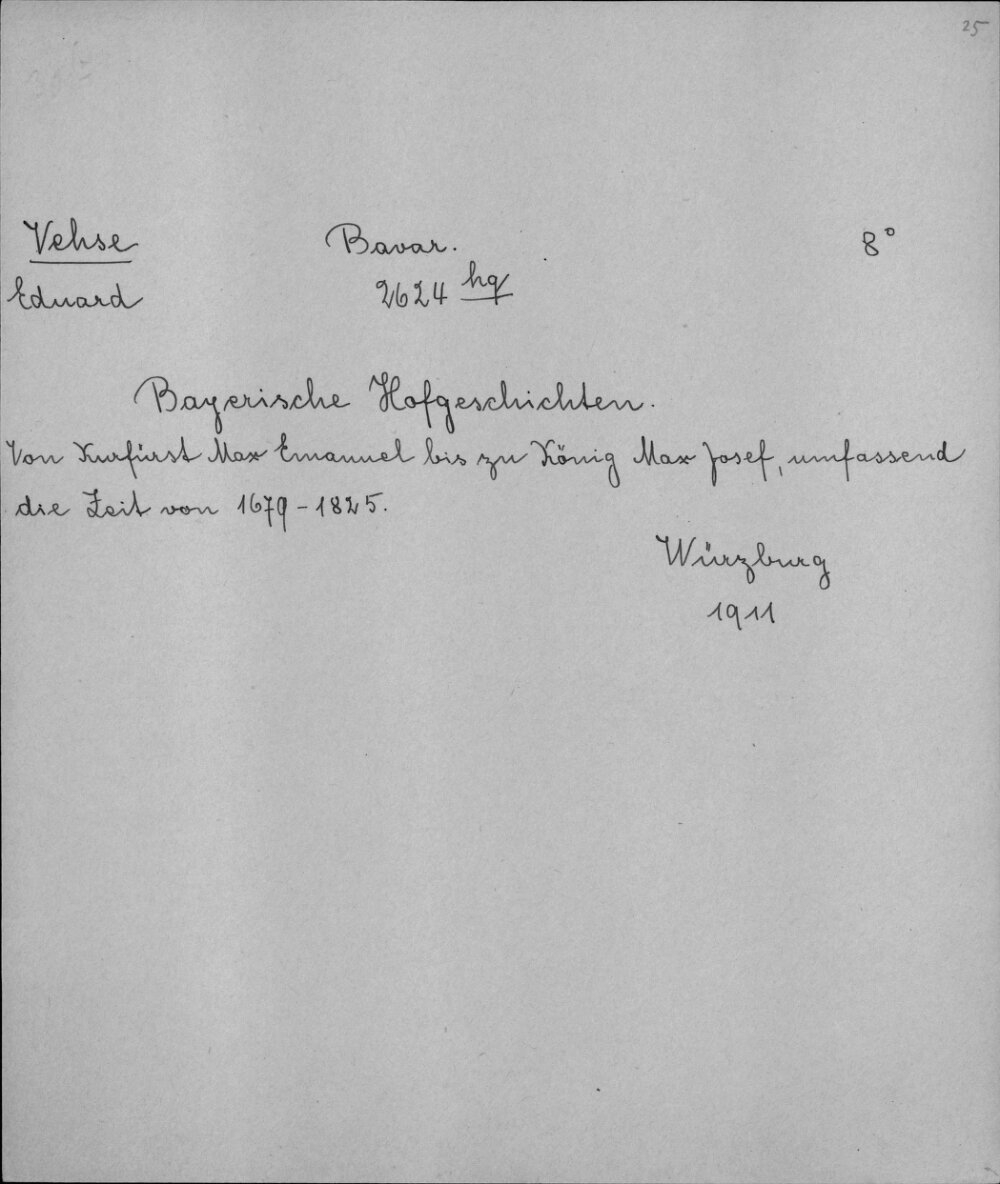 25
Vehse Bavar. 8°
Eduard 2624 hq
Bayerische Hofgeschichten.
Von Kurfürst Max Emanuel bis zu König Max Josef, umfassend
die Zeit von 1679-1825.
Würzburg
1911